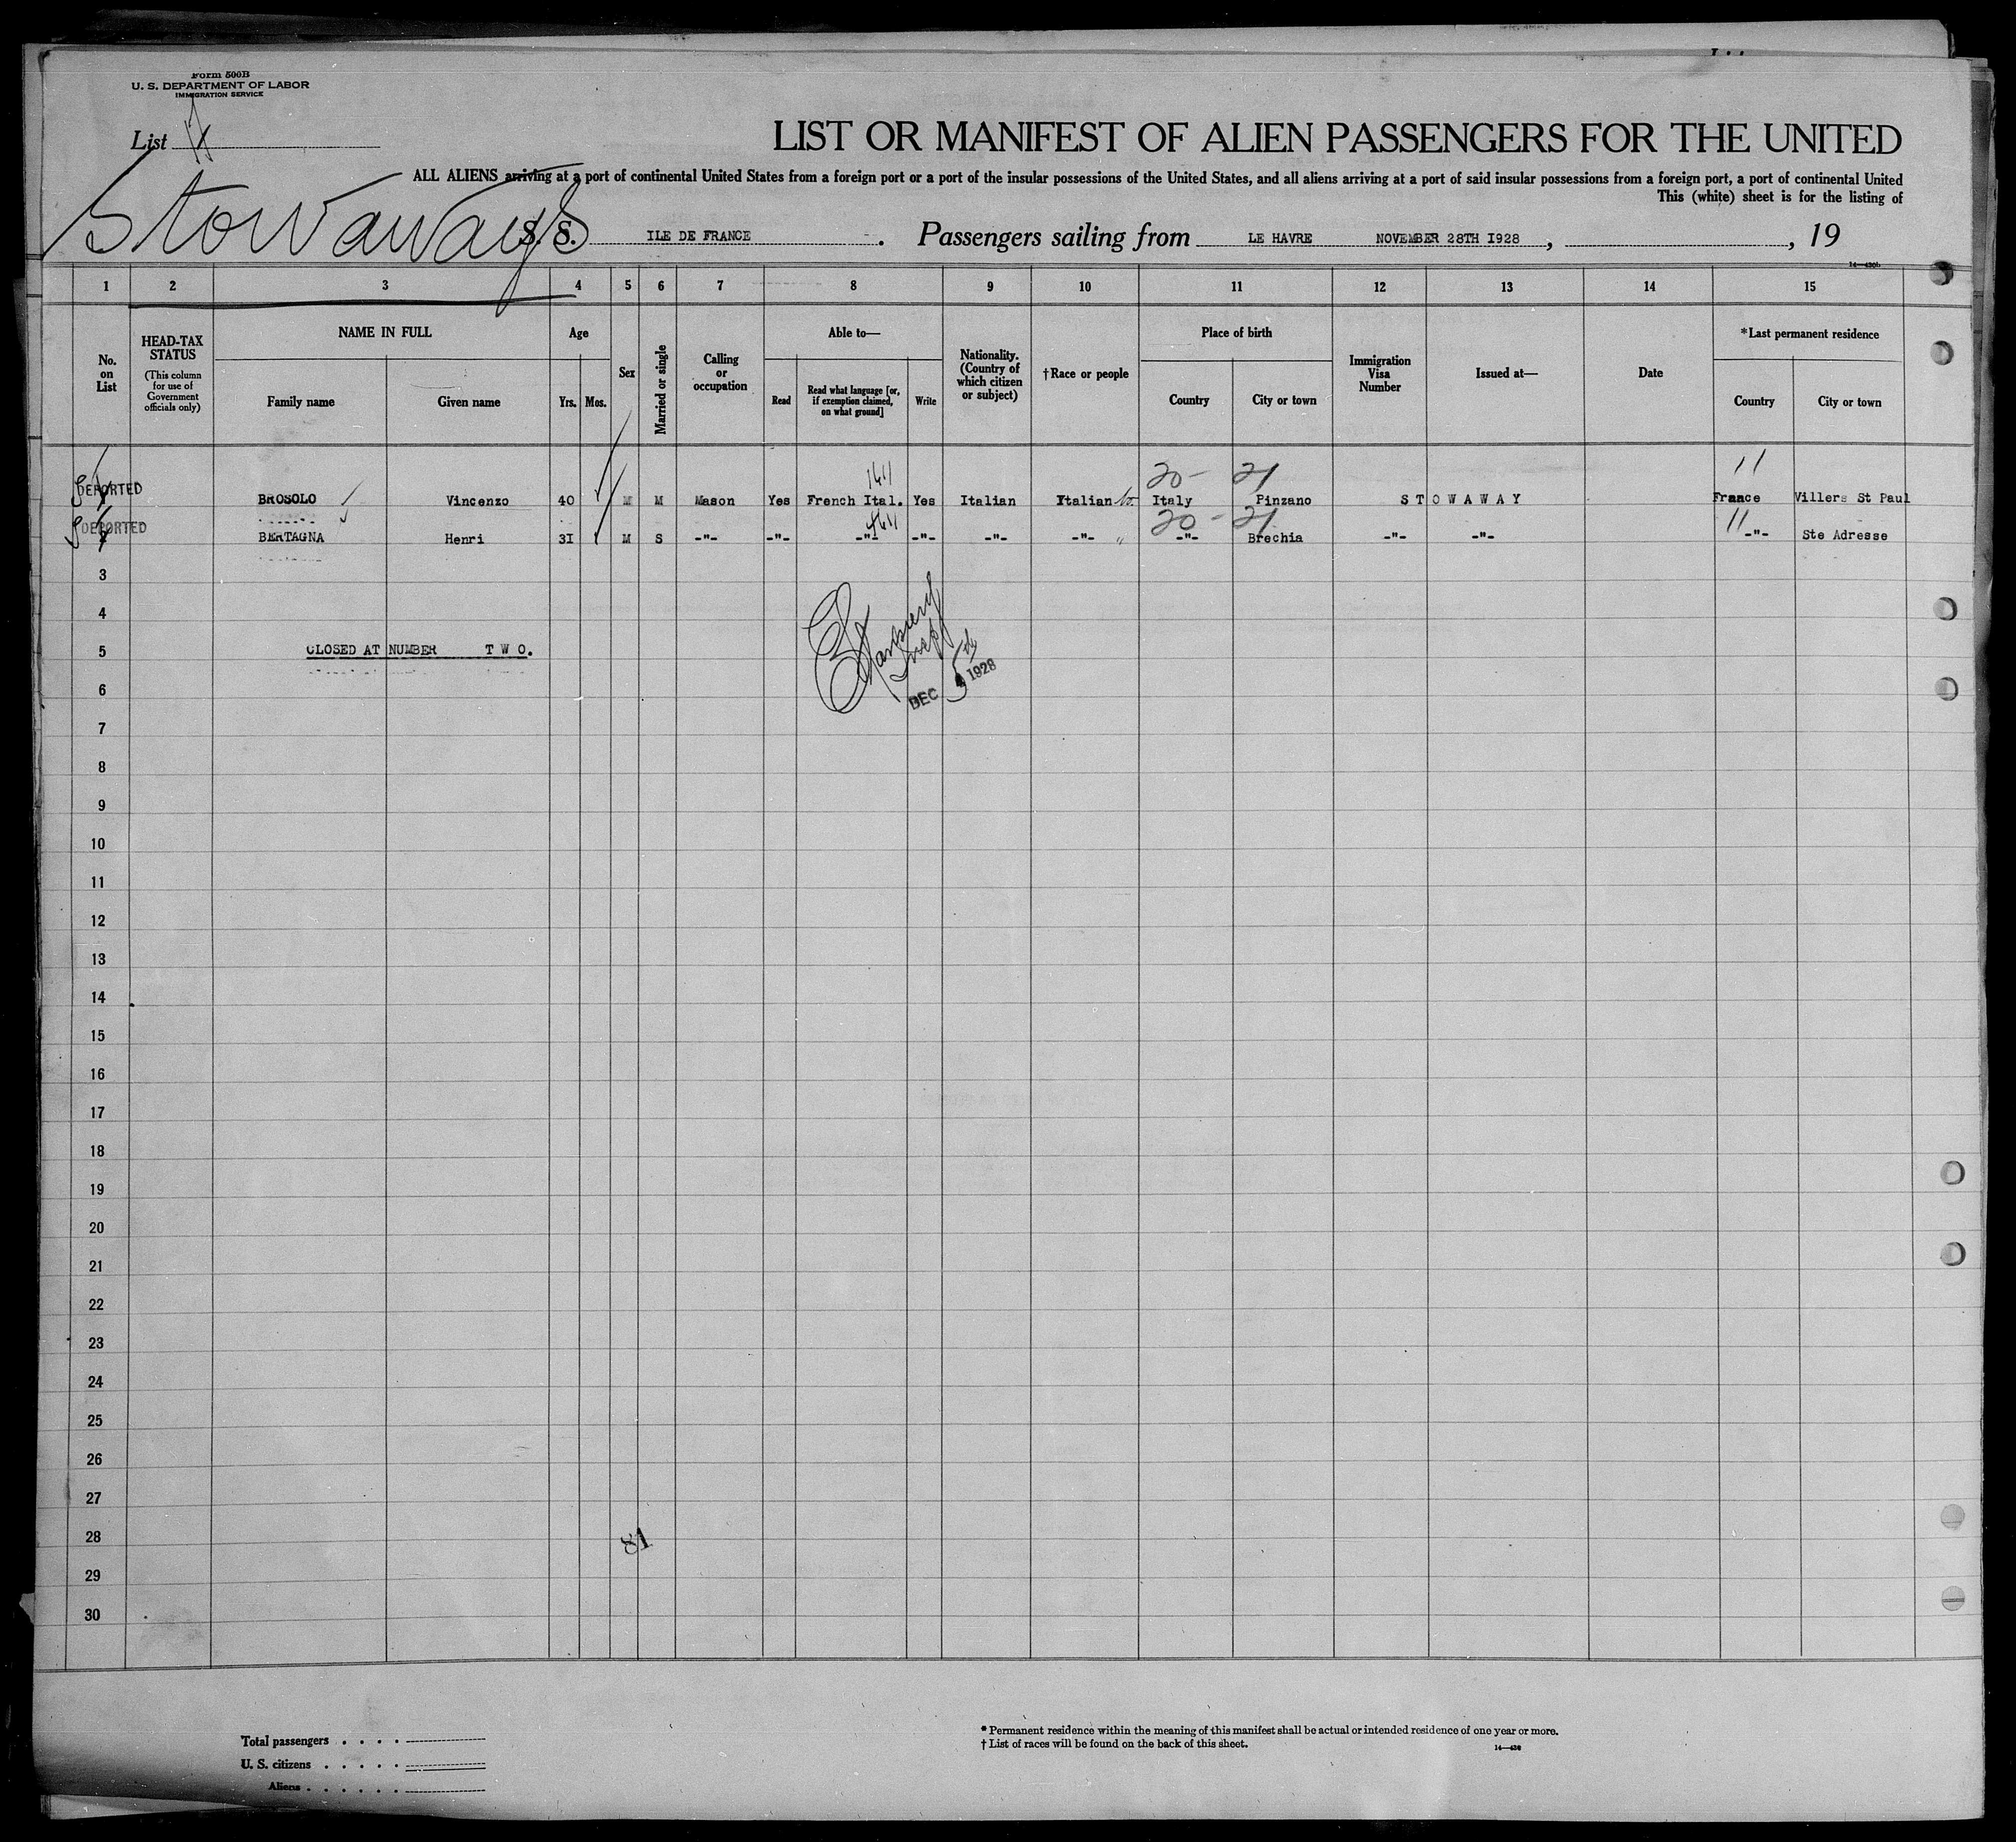 Form 500B
U. S. DEPARTMENT OF LABOR
IMMIGRATION SERVICE
List
LIST OR MANIFEST OF ALIEN PASSENGERS FOR THE UNITED
ALL ALIENS arriving at a port of continental United States from a foreign port or a port of the insular possessions of the United States, and all aliens arriving at a port of said insular possessions from a foreign port, a port of continental United
This (white) sheet is for the listing of
Stowaways
S. S. ILE DE FRANCE . Passengers sailing from LE HAVRE NOVEMBER 28TH 1928 , , 19
1 2 3 4 5 6 7 8 9 10 11 12 13 14 15
No. on List
HEAD-TAX STATUS
(This column for use of Government officials only)
NAME IN FULL
Family name Given name
Age
Yrs. Mos.
Sex
Married or single
Calling or occupation
Able to—
Read
Read what language [or, if exemption claimed, on what ground]
Write
Nationality. (Country of which citizen or subject)
†Race or people
Place of birth
Country City or town
Immigration Visa Number
Issued at—
Date
*Last permanent residence
Country City or town
1611 20- 21 11
DEPORTED BROSOLO Vincenzo 40 M M Mason Yes French Ital. Yes Italian Italian Italy Pinzano STOWAWAY France Villers St Paul
20 - 21 11
DEPORTED BERTAGNA Henri 3I M S -"- -"- -"- -"- -"- -"- -"- Brechia -"- -"- -"- Ste Adresse
3
4
5 CLOSED AT NUMBER T W O.
6
DEC 5th 1928
7
8
9
10
11
12
13
14
15
16
17
18
19
20
21
22
23
24
25
26
27
28
81
29
30
Total passengers . . . .
U. S. citizens . . . . .
Aliens . . . . . .
* Permanent residence within the meaning of this manifest shall be actual or intended residence of one year or more.
† List of races will be found on the back of this sheet.
14—430